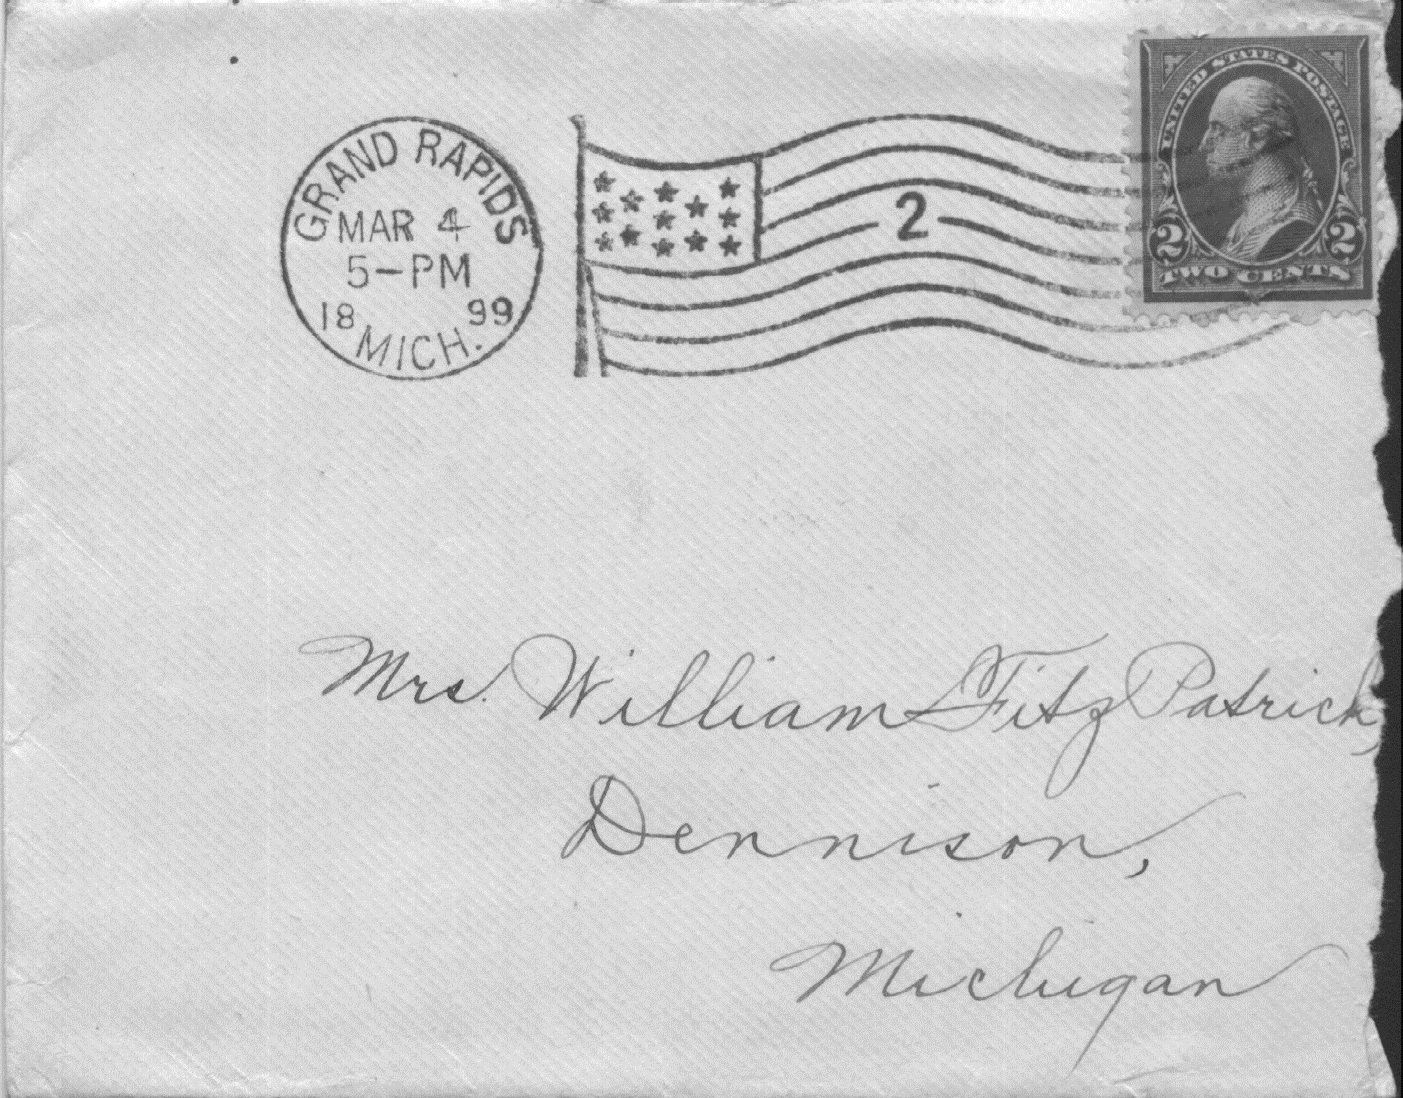 GRAND RAPIDS
MAR 4
5-PM
18 99
MICH.
2
UNITED STATES POSTAGE
2 2
TWO CENTS
Mrs. William FitzPatrick,
Dennison,
Michigan